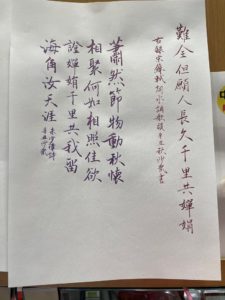 難全但願人長久千里共嬋娟
右錄宋蘇軾水調歌頭辛丑秋沙戥書
蕭然節物動秋懷
相聚何如相照佳欲
詮嬋娟千里共我留
海角汝天涯